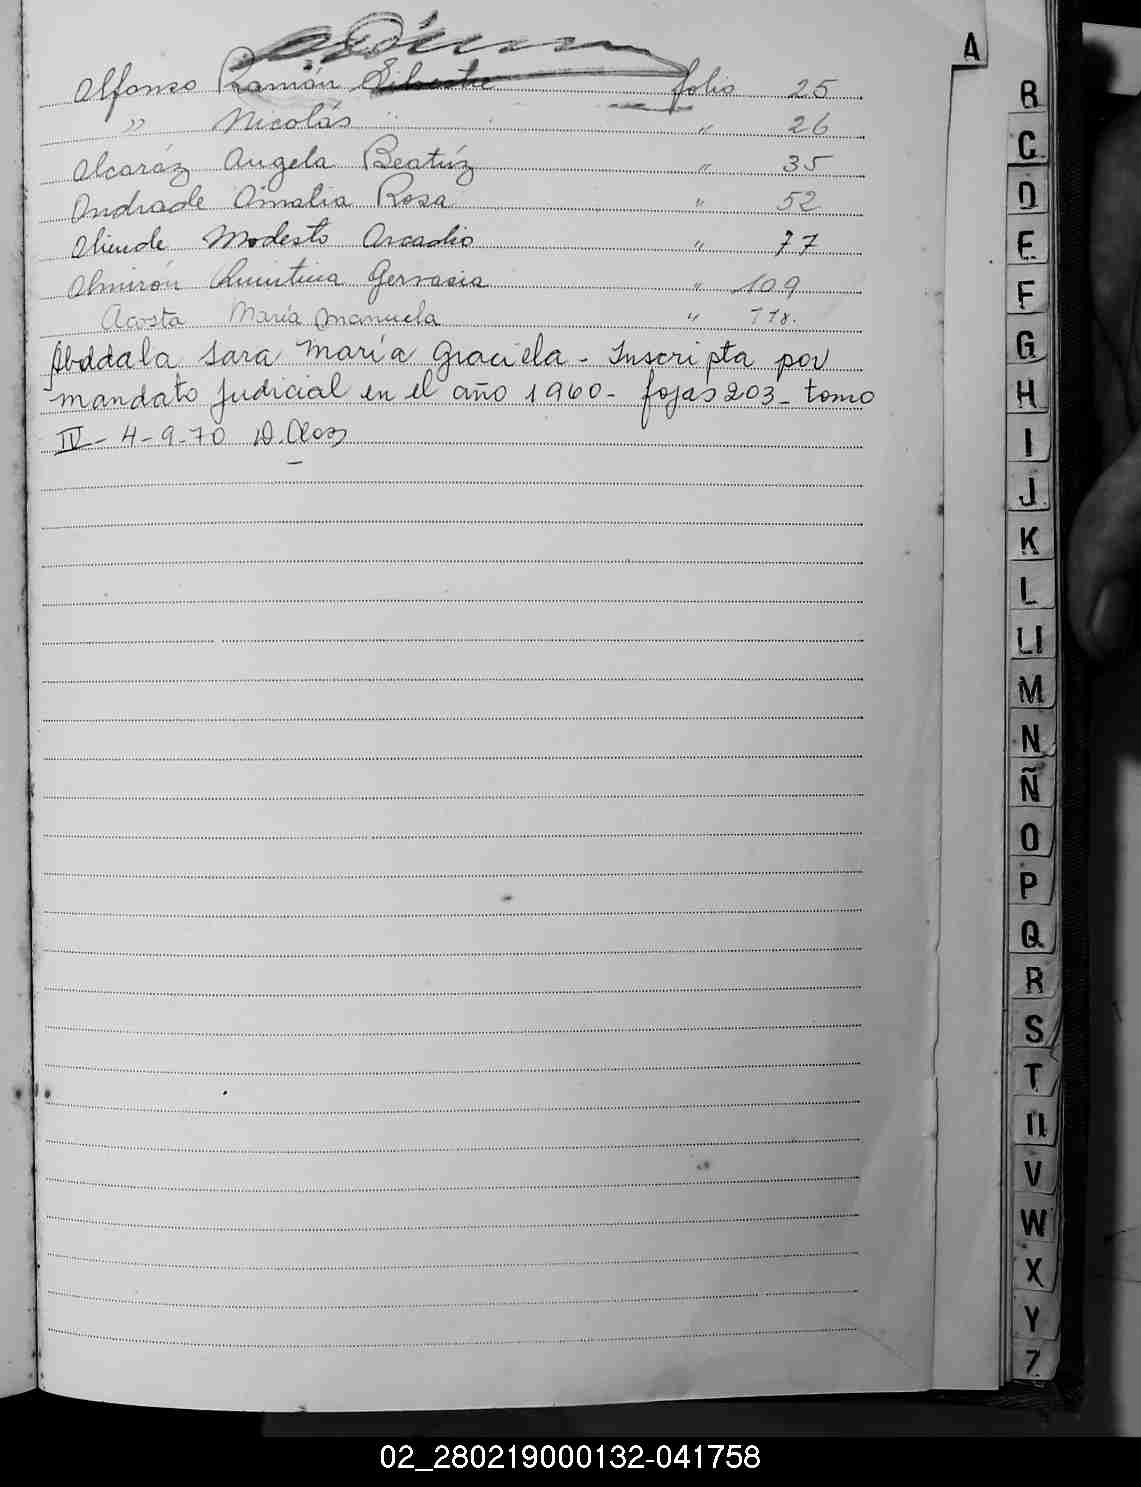 Alfonso Ramón Silvestre folio 25
" Nicolás " 26
Alcaráz Angela Beatríz " 35
Andrade Amalia Rosa " 52
Aliende Modesto Arcadio " 77
Almirón Quintina Gervacia " 109
Acosta María Manuela " 118.
Abddala Sara María Graciela - Inscripta por
mandato Judicial en el año 1960 - fojas 203 - tomo
IV - 4-9-70
A
B
C
D
E
F
G
H
I
J
K
L
Ll
M
N
Ñ
O
P
Q
R
S
T
U
V
W
X
Y
Z
02_280219000132-041758